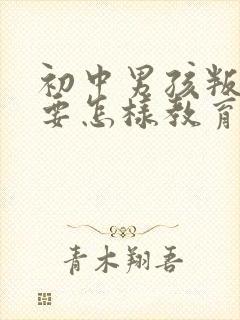 初中男孩叛
要怎样教育
青木翔吾